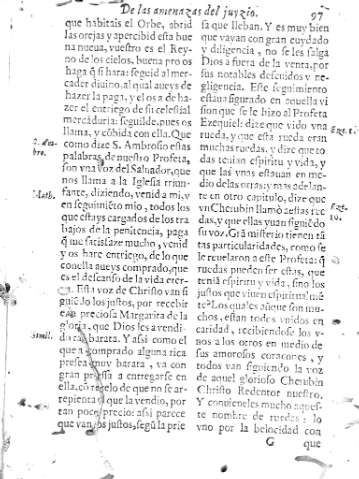 De las amenazas del juyzio. 97
que habitais el Orbe, abrid
las orejas y apercibid esta bue
na nueua, vuestro es el Rey-
no de los cielos, buena pro os
haga q̃ si hara: seguid al mer-
cader diuino, al qual aueys de
hazer la paga, y el os a de ha-
zer el entriego de su celestial
mercaduria: seguilde, pues os
llama, y cõbida con ella. Que
como dize S. Ambrosio estas
palabras, de nuestro Profeta,
son vna voz del Saluador, que
nos llama a la Iglesia triun-
fante, diziendo, venid a mi, y
en seguimiẽto mio, todos los
que estays cargados de los tra
bajos de la penitencia, paga
q̃ me satisfaze mucho, venid
y os hare entriego, de lo que
con ella aueys comprado, que
es el descanso de la vida eter-
na. Esta voz de Christo van si
guiẽdo los justos, por recebir
esta preciosa Margarita de la
gloria, que Dios les a vendi-
do tan barata. Y assi como el
que a comprado alguna rica
presea muy barata, va con
gran priessa a entregarse en
ella, cõ recelo de que no se ar-
repienta el que la vendio, por
tan poco precio: assi parece
que van los justos, segũ la prie
sa que lleban. Y es muy bien
que vayan con gran cuydado
y diligencia, no se les salga
Dios a fuera de la venta, por
sus notables desuidos y ne-
gligencia. Este seguimiento
estaua figurado en aquella vi
sion que se le hizo al Profeta
Ezequiel: dize que vido vna
rueda, y que esta rueda eran
muchas ruedas, y dize que to
das tenian espiritu y vida, y
que las vnas estauan en me-
dio de las otras: y mas adelan-
te en otro capitulo, dize que
vn Cherubin llamò a estas rue
das, y que ellas yuan siguiẽdo
su voz. Grã misterio tienen tã
tas particularidades, como se
le reuelaron a este Profeta: q̃
ruedas pueden ser estas, que
teniã espiritu y vida, sino los
justos que viuen espiritualmẽ
te? Los quales aũque son mu-
chos, estan todos vnidos en
caridad, recibiendose los v-
nos a los otros en medio de
sus amorosos coraçones, y
todos van siguiendo la voz
de aquel glorioso Cherubin
Christo Redentor nuestro.
Y conuieneles mucho aques-
te nombre de ruedas: lo
vno por la belocidad con
G que
Math.
simil.
Eze. 1.
Eze.
10.